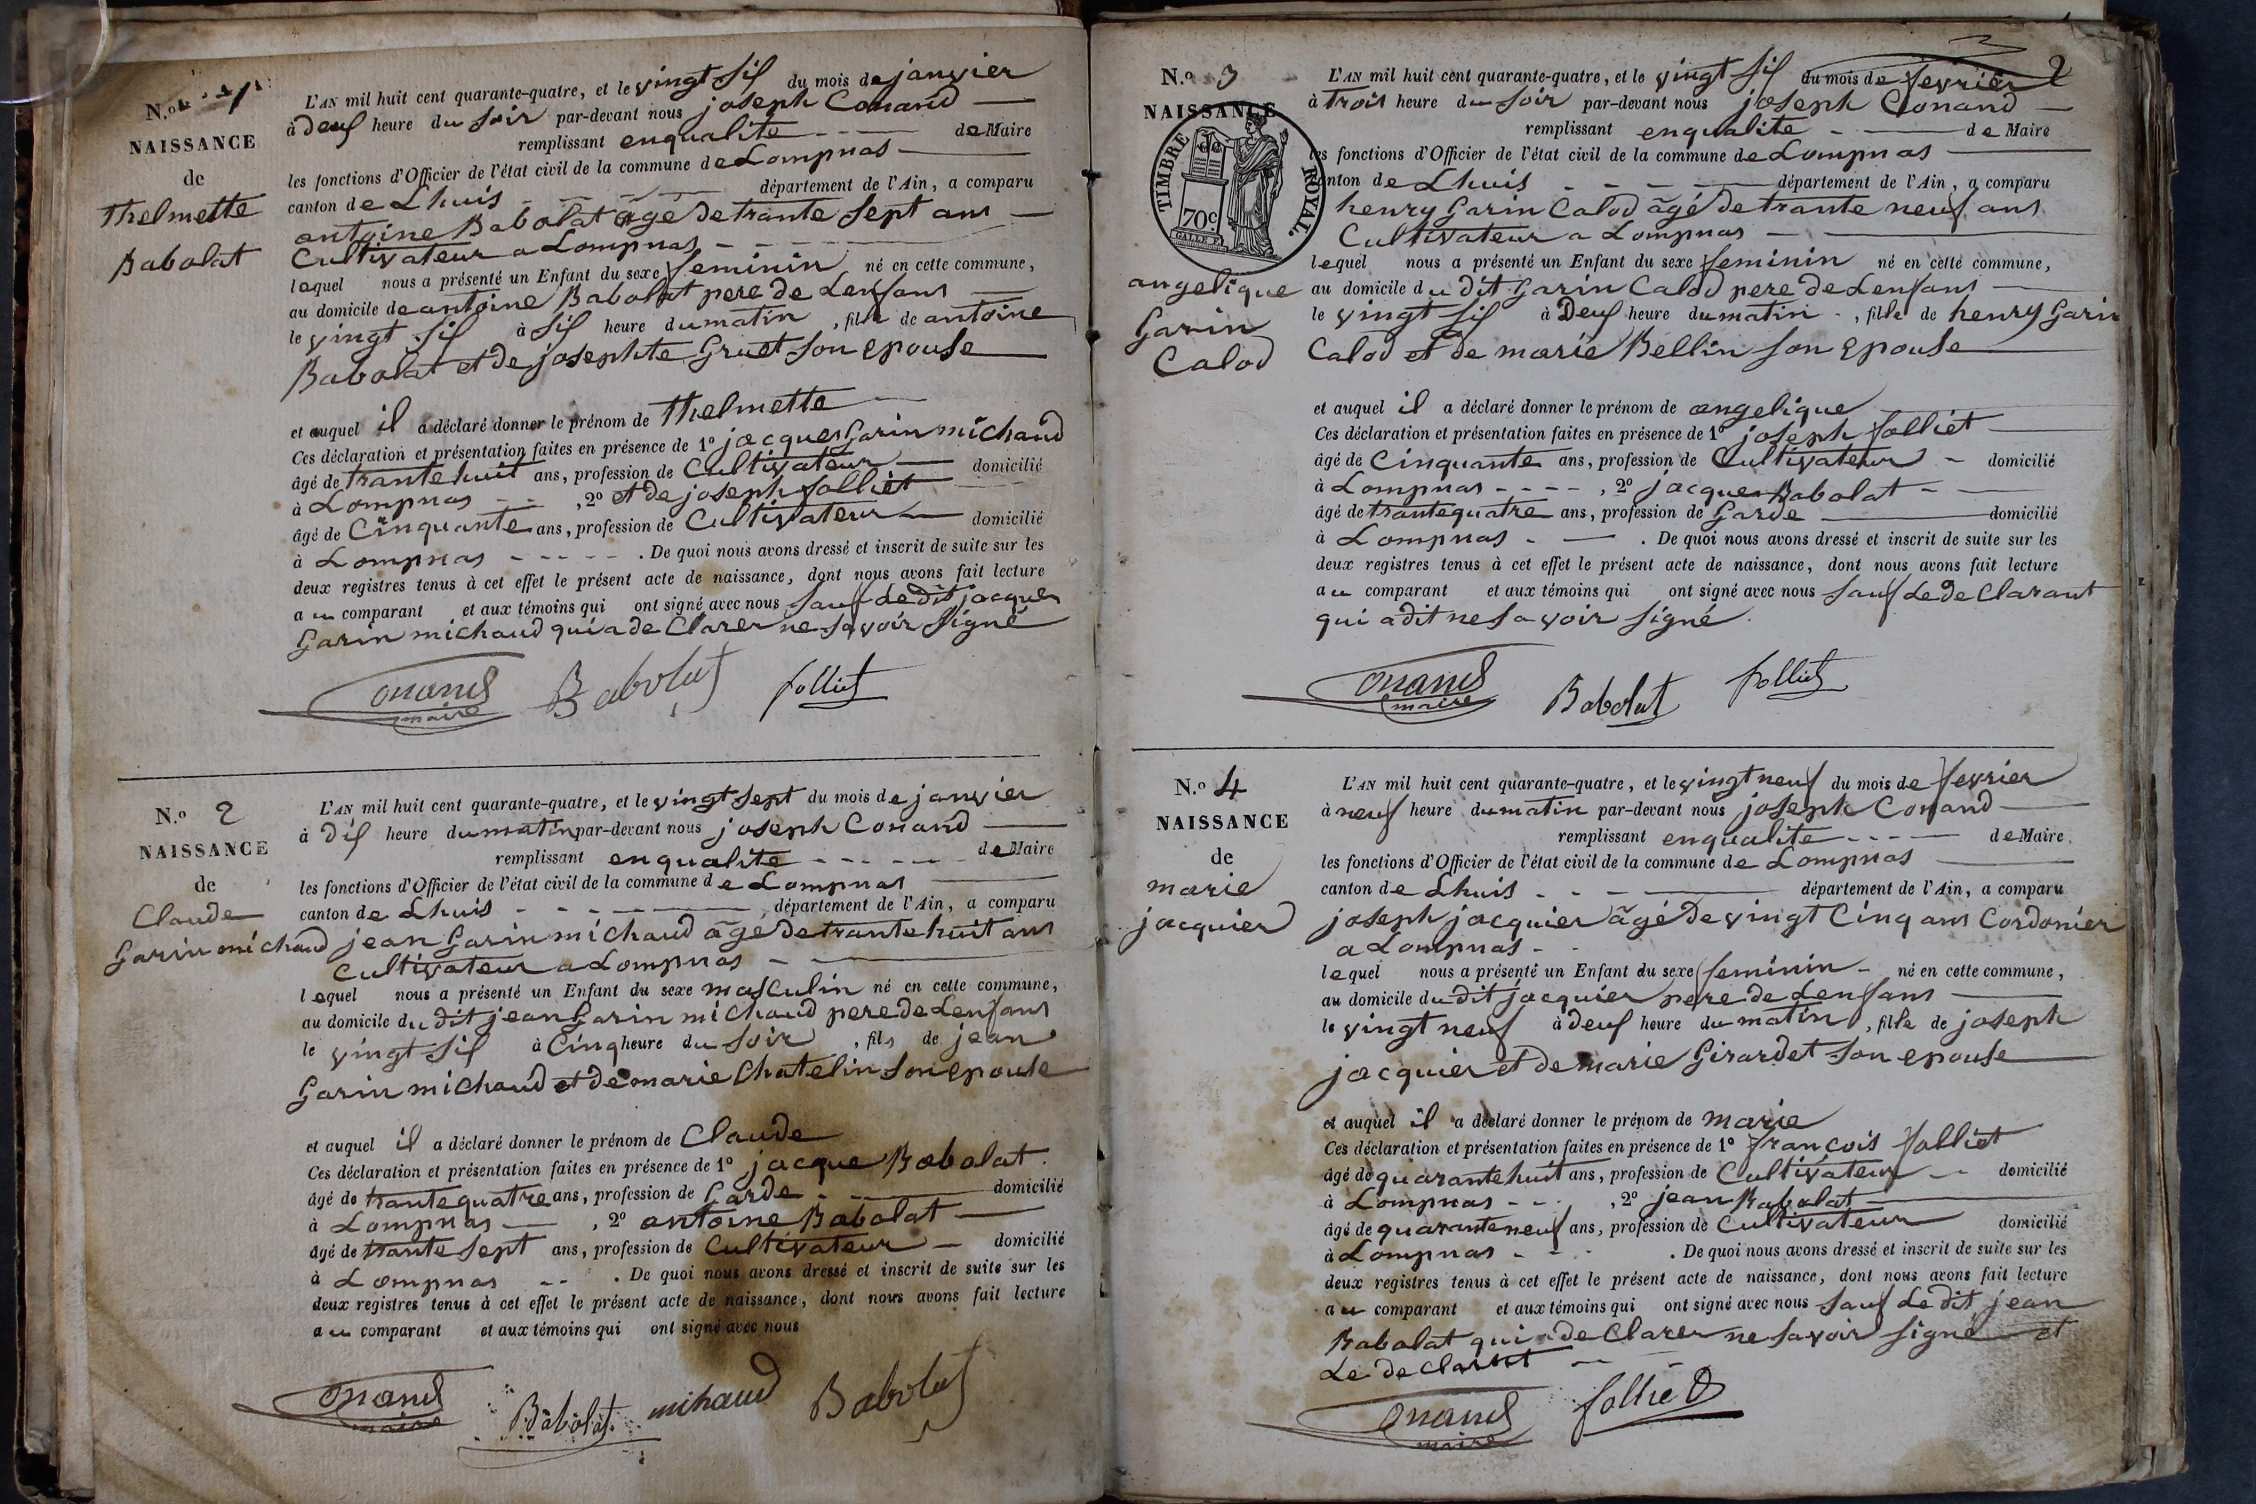 N.o 1
NAISSANCE
de
Thelmette
Babolat
L'AN mil huit cent quarante-quatre, et le vingt sis du mois de janvier
à deus heure du soir par-devant nous joseph Conand
remplissant enqualite de Maire
les fonctions d'Officier de l'état civil de la commune de Lompnas
canton de Lhuis département de l'Ain, a comparu
antoine Babolat âgé de trante sept ans
Cultivateur a Lompnas
lequel nous a présenté un Enfant du sexe feminin né en cette commune,
au domicile de antoine Babolat pere de Lenfans
le vingt sis à sis heure du matin, fille de antoine
Babolat et de josephte Gruet son epouse
et auquel il a déclaré donner le prénom de Thelmette
Ces déclaration et présentation faites en présence de 1o jacques Garin michaud
âgé de trante huit ans, profession de Cultivateur domicilié
à Lompnas, 2o et de joseph folliet
âgé de Cinquante ans, profession de Cultivateur domicilié
à Lompnas. De quoi nous avons dressé et inscrit de suite sur les
deux registres tenus à cet effet le présent acte de naissance, dont nous avons fait lecture
au comparant et aux témoins qui ont signé avec nous sauf Ledit jacques
Garin michaud qui a de Clarer ne savoir signé
Conand Babolat folliet
maire
N.o 2
NAISSANCE
de
Claude
Garin michaud
L'AN mil huit cent quarante-quatre, et le vingt sept du mois de janvier
à dis heure du matin par-devant nous joseph Conand
remplissant enqualite de Maire
les fonctions d'Officier de l'état civil de la commune de Lompnas
canton de Lhuis département de l'Ain, a comparu
jean Garin michaud âgé de trante huit ans
Cultivateur a Lompnas
lequel nous a présenté un Enfant du sexe masculin né en cette commune,
au domicile du dit jean Garin michaud pere de Lenfans
le vingt sis à Cinq heure du soir, fils de jean
Garin michaud et de marie Chatelin son epouse
et auquel il a déclaré donner le prénom de Claude
Ces déclaration et présentation faites en présence de 1o jacque Babolat
âgé de trante quatre ans, profession de Garde domicilié
à Lompnas, 2o antoine Babolat
âgé de trante sept ans, profession de Cultivateur domicilié
à Lompnas. De quoi nous avons dressé et inscrit de suite sur les
deux registres tenus à cet effet le présent acte de naissance, dont nous avons fait lecture
au comparant et aux témoins qui ont signé avec nous
Conand Babolat michaud Babolat
maire
2
N.o 3
NAISSANCE
TIMBRE ROYAL.
70c
angelique
Garin
Calod
L'AN mil huit cent quarante-quatre, et le vingt sis du mois de fevrier
à trois heure du soir par-devant nous joseph Conand
remplissant enqualite de Maire
les fonctions d'Officier de l'état civil de la commune de Lompnas
canton de Lhuis département de l'Ain, a comparu
henry Garin Calod âgé de trante neuf ans
Cultivateur a Lompnas
lequel nous a présenté un Enfant du sexe feminin né en cette commune,
au domicile du dit Garin Calod pere de Lenfans
le vingt sis à Deus heure du matin, fille de henry Garin
Calod et de marie Bellin son epouse
et auquel il a déclaré donner le prénom de angelique
Ces déclaration et présentation faites en présence de 1o joseph folliet
âgé de Cinquante ans, profession de Cultivateur domicilié
à Lompnas, 2o jacques Babolat
âgé de trante quatre ans, profession de Garde domicilié
à Lompnas. De quoi nous avons dressé et inscrit de suite sur les
deux registres tenus à cet effet le présent acte de naissance, dont nous avons fait lecture
au comparant et aux témoins qui ont signé avec nous sauf Le de Clarant
qui a dit ne savoir signé.
Conand Babolat folliet
maire
N.o 4
NAISSANCE
de
marie
jacquier
L'AN mil huit cent quarante-quatre, et le vingt neuf du mois de fevrier
à neuf heure du matin par-devant nous joseph Conand
remplissant enqualite de Maire
les fonctions d'Officier de l'état civil de la commune de Lompnas
canton de Lhuis département de l'Ain, a comparu
joseph jacquier âgé de vingt Cinq ans Cordonier
a Lompnas
lequel nous a présenté un Enfant du sexe feminin né en cette commune,
au domicile du dit jacquier pere de Lenfans
le vingt neuf à deus heure du matin, fille de joseph
jacquier et de marie Girardet son epouse
et auquel il a déclaré donner le prénom de marie
Ces déclaration et présentation faites en présence de 1o francois folliet
âgé de quarante huit ans, profession de Cultivateur domicilié
à Lompnas, 2o jean Babolat
âgé de quarante neuf ans, profession de Cultivateur domicilié
à Lompnas. De quoi nous avons dressé et inscrit de suite sur les
deux registres tenus à cet effet le présent acte de naissance, dont nous avons fait lecture
au comparant et aux témoins qui ont signé avec nous sauf Le dit jean
Babolat qui a de Clarer ne savoir signé et
Le de Clarent
Conand folliet
maire